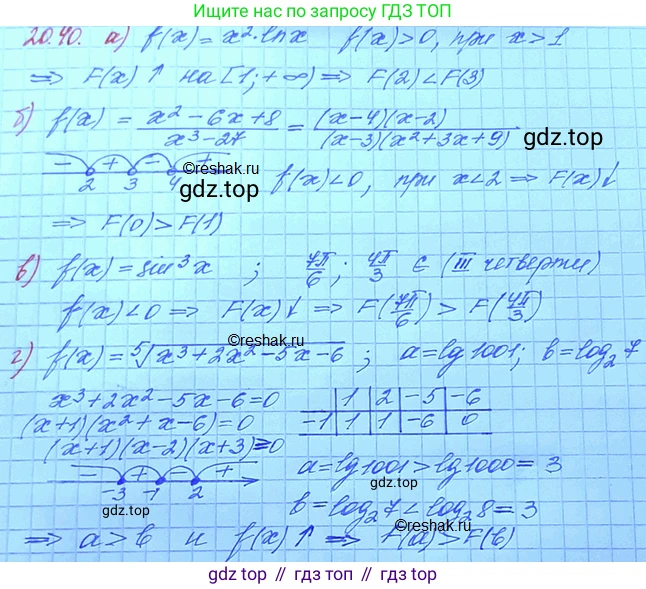 Ищите нас в поиске по запросу ГДЗ ТОП
20.40. а) f(x) = x²·lnx f(x)>0, при x>1
⇒ F(x)↑ на [1;+∞) ⇒ F(2)<F(3)
б) f(x) = (x²-6x+8)/(x³-27) = ((x-4)(x-2))/((x-3)(x²+3x+9))
gdz.top
©reshak.ru
gdz.top
- + - +
2 3 4
f(x)<0, при x<2 ⇒ F(x)↓
⇒ F(0)>F(1)
в) f(x)=sin³x ; 7π/6 ; 4π/3 ∈ (III четверти)
f(x)<0 ⇒ F(x)↓ ⇒ F(7π/6) > F(4π/3)
©reshak.ru
г) f(x)=⁵√(x³+2x²-5x-6) ; a=lg1001; b=log₂7
x³+2x²-5x-6=0
1 2 -5 -6
(x+1)(x²+x-6)=0
-1 1 1 -6 0
(x+1)(x-2)(x+3)=0
- + - +
-3 -1 2
a=lg1001>lg1000=3
gdz.top
b=log₂7<log₂8=3
©reshak.ru
gdz.top
⇒ a>b и f(x)↑ ⇒ F(a)>F(b)
gdz.top // гдз.топ // gdz.top